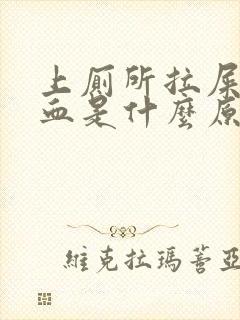 上厕所拉屎
血是什麼原
維克拉瑪蓍亞